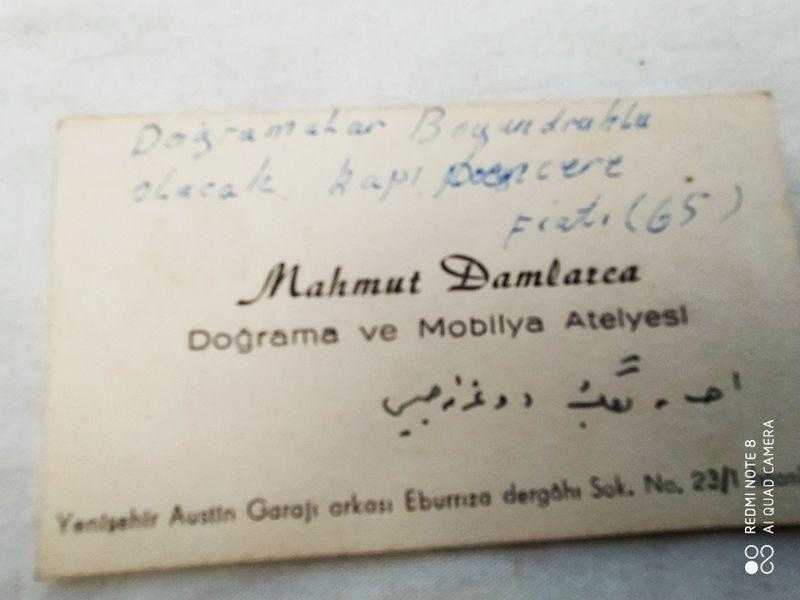 Doğramalar Boyunduruklu
olacak kapı pencere
Fiatı (65)
Mahmut Damlarca
Doğrama ve Mobilya Atelyesi
Yenişehir Austin Garajı arkası Eburrıza dergâhı Sok. No. 23/1
REDMI NOTE 8
AI QUAD CAMERA